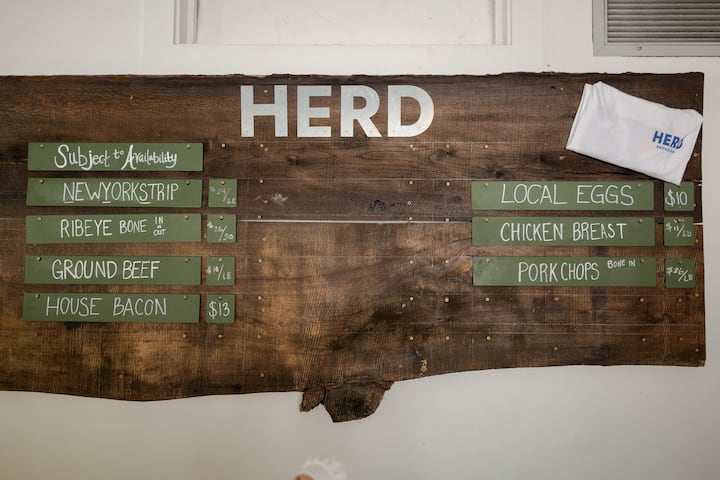 HERD
Subject to Availability
NEW YORK STRIP
RIBEYE BONE IN OR OUT $26/30
GROUND BEEF
HOUSE BACON $13
HERD
LOCAL EGGS $10
CHICKEN BREAST
PORK CHOPS BONE IN